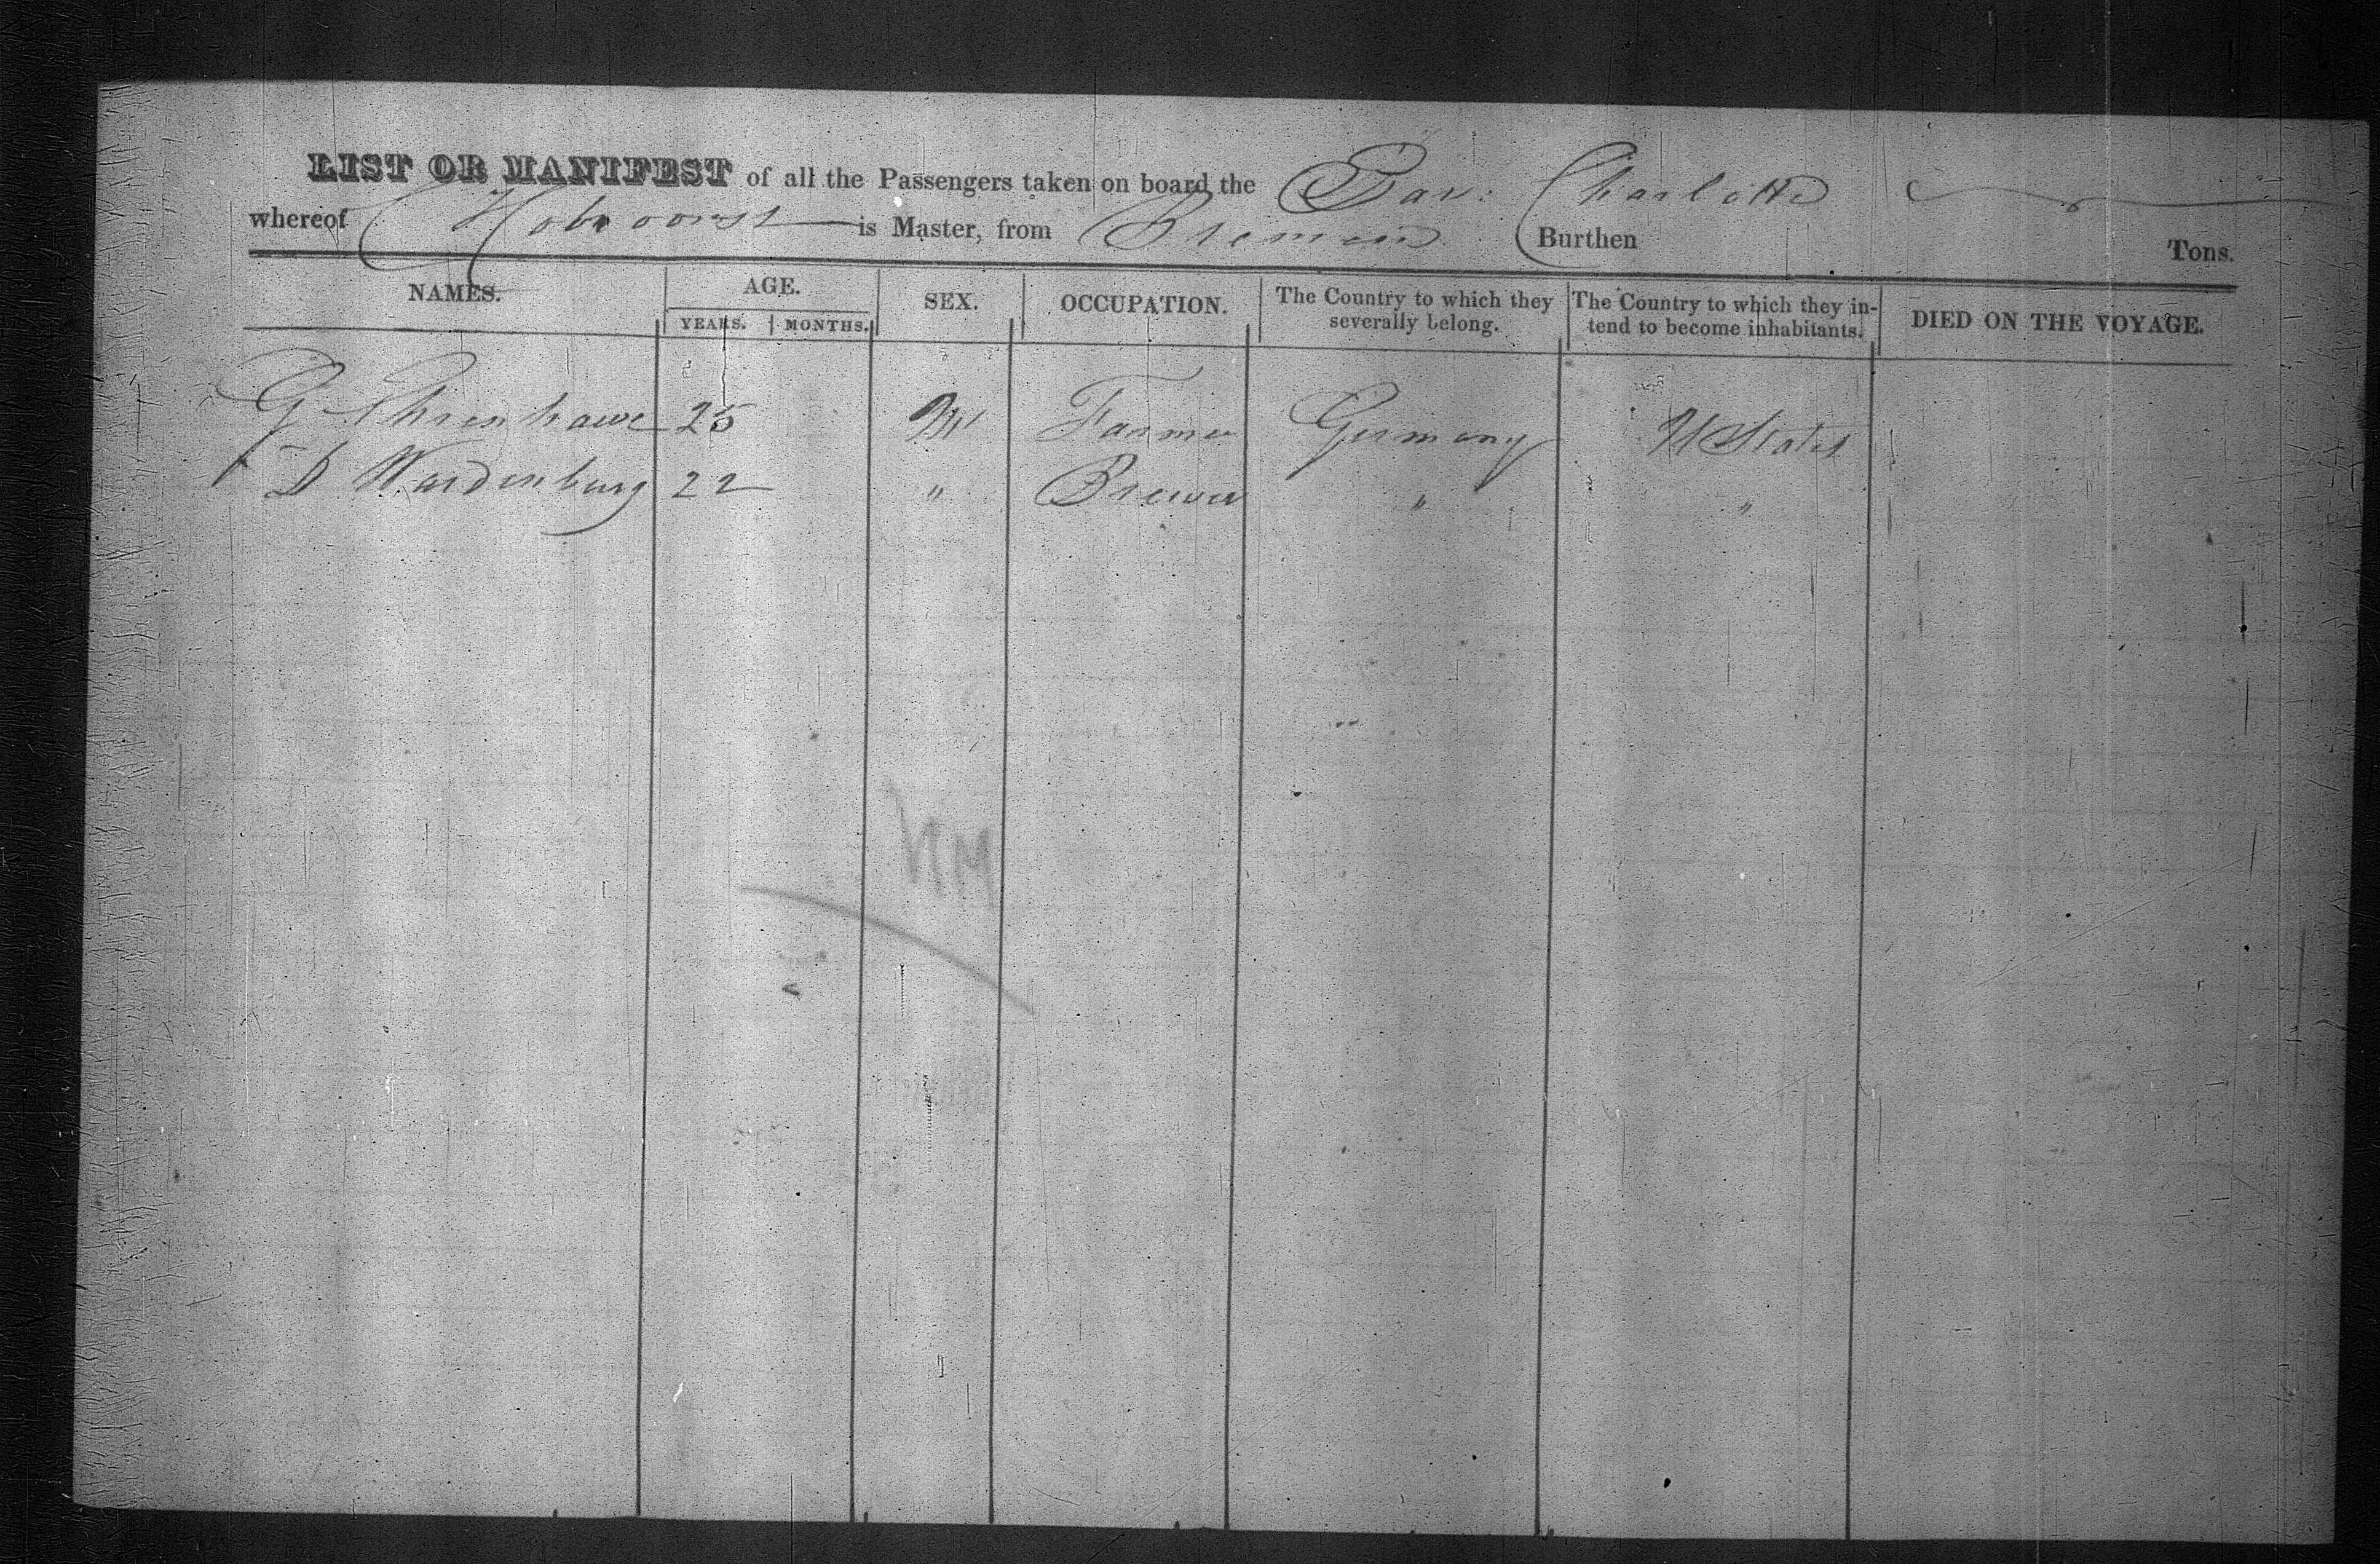 LIST OR MANIFEST of all the Passengers taken on board the Bar: Charlotte
whereof is Master, from Bremen Burthen Tons.
NAMES. AGE. SEX. OCCUPATION. The Country to which they severally belong. The Country to which they in-tend to become inhabitants. DIED ON THE VOYAGE.
YEARS. MONTHS.
G 25 M Farmer Germany U States
D Wardenburg 22 " Brewer " "